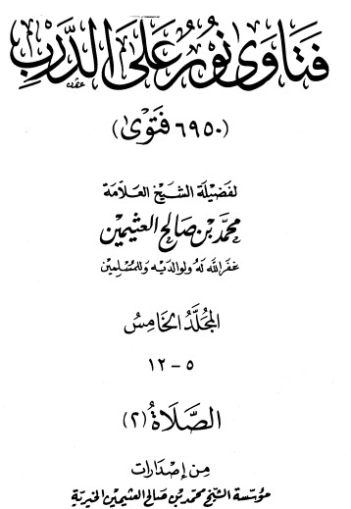 فَتَاوَى نُورٌ عَلَى الدَّرْبِ
(٦٩٥٠ فَتْوَى)
لفَضيلَة الشَّيْخ العَلَّامَة
مُحَمَّد بْن صَالِح العُثَيْمِين
غَفَرَ اللَّه لَهُ وَلِوَالِدَيْهِ وَلِلْمُسْلِمِين
المُجَلَّدُ الخَامِسُ
٥ - ١٢
الصَّلَاةُ (٢)
مِن إِصْدَارات
مُؤسَّسَة الشَّيْخ مُحَمَّد بْن صَالِح العُثَيْمِين الخَيْرِيَّة